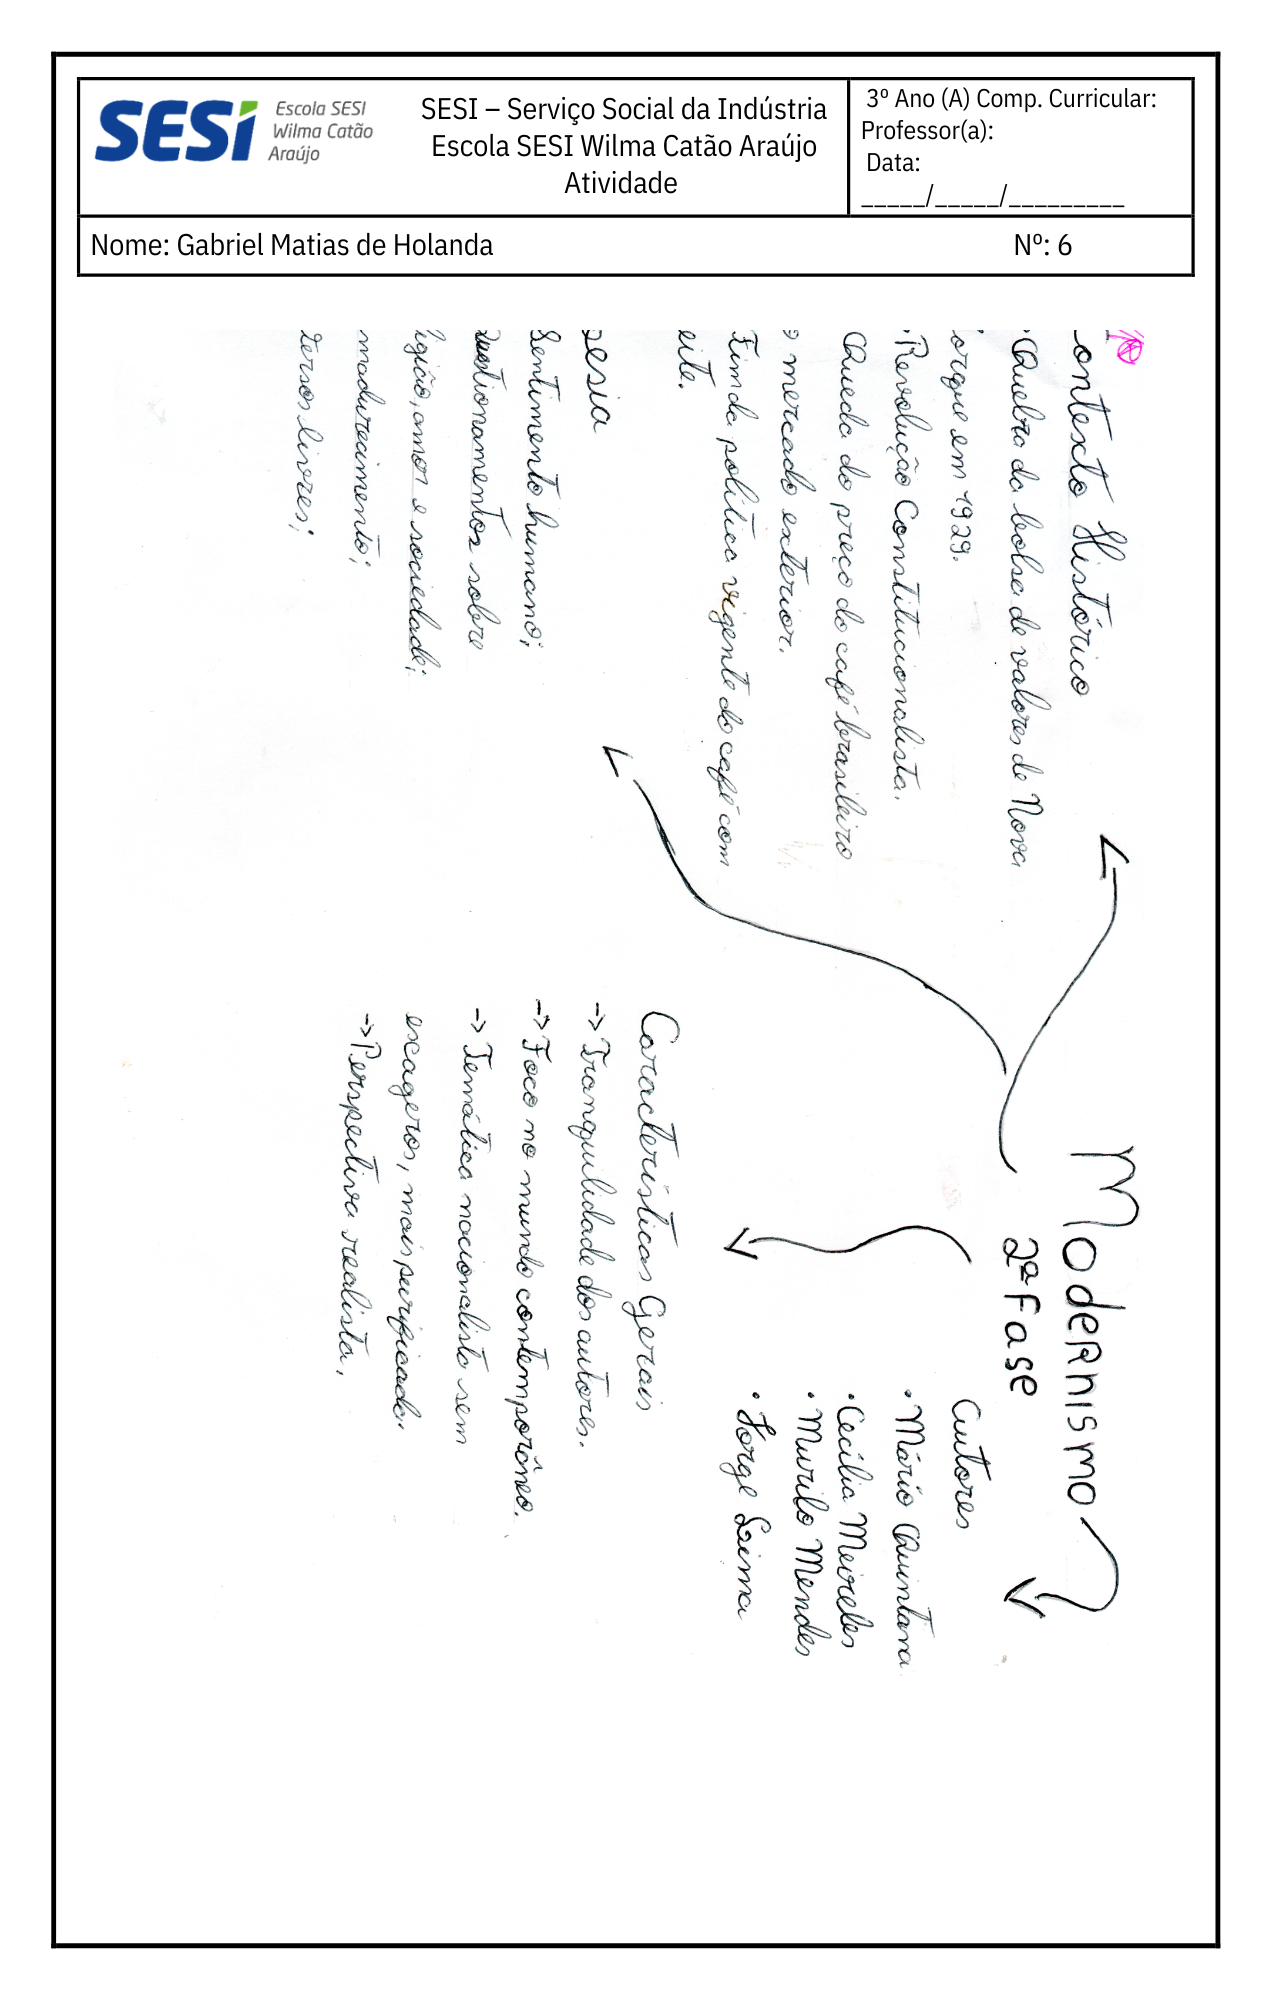 SESI
Escola SESI
Wilma Catão
Araújo
SESI – Serviço Social da Indústria
Escola SESI Wilma Catão Araújo
Atividade
3º Ano (A) Comp. Curricular:
Professor(a):
Data:
_____/_____/_________
Nome: Gabriel Matias de Holanda Nº: 6
Modernismo
2ª Fase
ontexto Histórico
· Quebra da bolsa de valores de Nova
orque em 1929.
· Revolução Constitucionalista.
Queda do preço do café brasileiro
o mercado exterior.
Fim da política vigente do café com
eite.
oesia
Sentimento humano;
Questionamentos sobre
igião, amor e sociedade;
madurecimento;
Versos livres;
Características Gerais
-> Tranquilidade dos autores.
-> Foco no mundo contemporâneo.
-> Temática nacionalista sem
exageros, mais purificada.
-> Perspectiva realista.
Autores
· Mário Quintana
· Cecília Meireles
· Murilo Mendes
· Jorge Lima